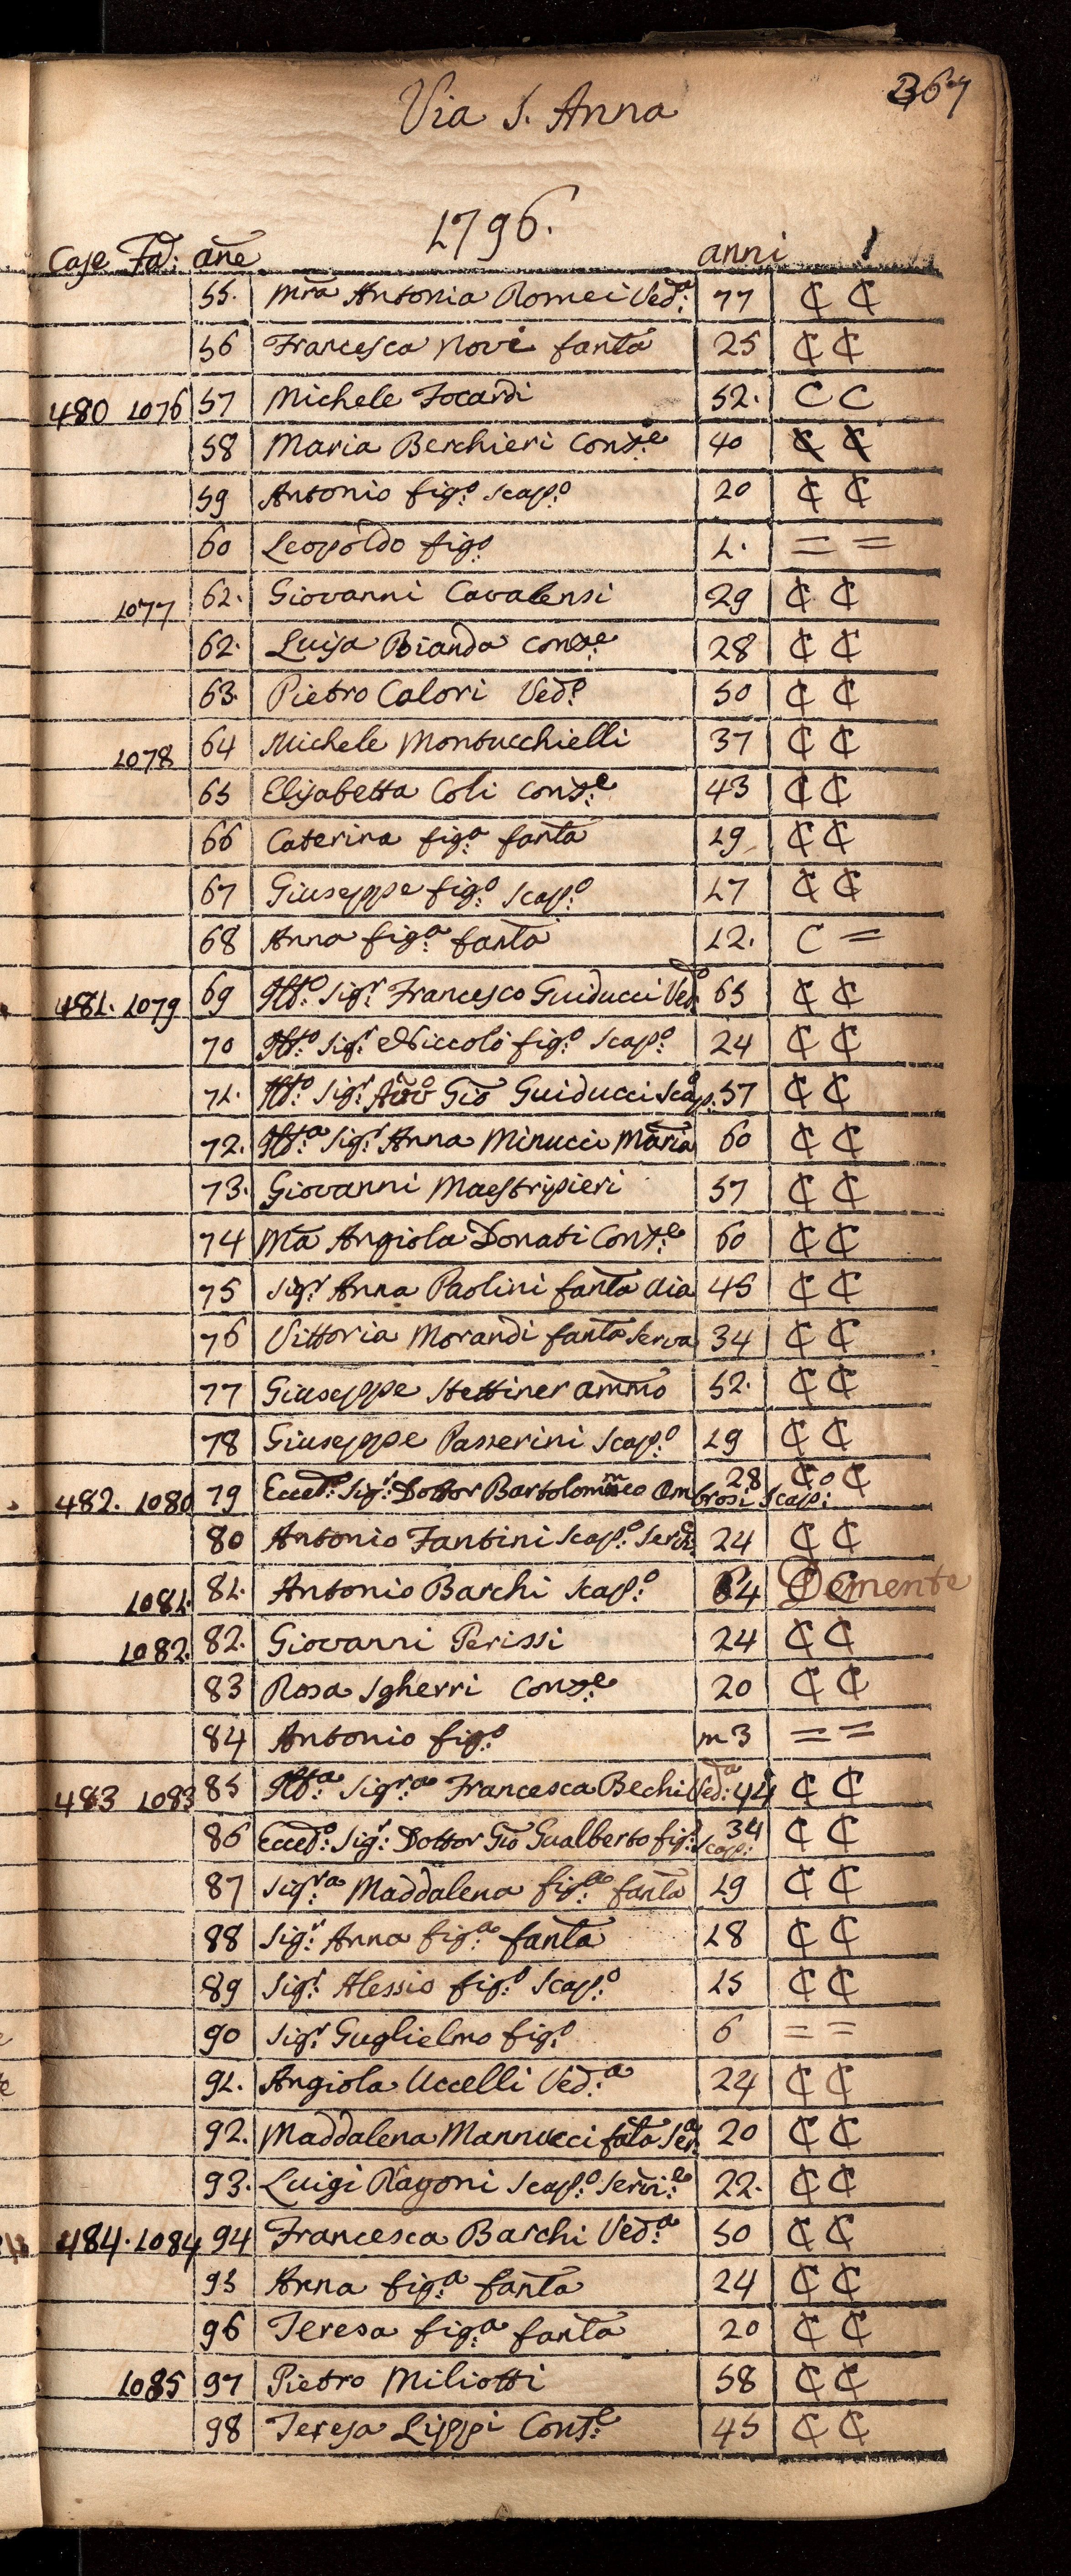 367
Via S. Anna
1796.
Case Fa: añe anni
55. Mra Antonia Romei Ved:a 77 ₵ ₵
56 Francesca Novi fanta 25 ₵ ₵
480 1076 57 Michele Focardi 52. C C
58 Maria Berchieri Cons:e 40 ₵ ₵
59 Antonio fig:o scap:o 20 ₵ ₵
60 Leopoldo fig:o 1. = =
1077 61. Giovanni Cavalensi 29 ₵ ₵
62. Luisa Bianda Cons:e 28 ₵ ₵
63. Pietro Calori Ved:o 50 ₵ ₵
1078 64 Michele Montucchielli 37 ₵ ₵
65 Elisabetta Coli Cons:e 43 ₵ ₵
66 Caterina fig:a fanta 19 ₵ ₵
67 Giuseppe fig:o scap:o 17 ₵ ₵
68 Anna fig:a fanta 12. C =
481. 1079 69 Ill:o Sig:r Francesco Guiducci Ved:o 65 ₵ ₵
70 Ill:o Sig:r Niccolò fig:o scap:o 24 ₵ ₵
71. Ill:o Sig:r Avv:o Gio Guiducci Scap:o 57 ₵ ₵
72. Ill:a Sig:r Anna Minucci Maria 60 ₵ ₵
73. Giovanni Maestripieri 57 ₵ ₵
74 Ma Angiola Donati Cons:e 60 ₵ ₵
75 Sig:r Anna Paolini fanta Aia 45 ₵ ₵
76 Vittoria Morandi fanta Serva 34 ₵ ₵
77 Giuseppe Stettiner ammo 52. ₵ ₵
78 Giuseppe Passerini Scap:o 19 ₵ ₵
482. 1080 79 Ecced:o Sig:r Dottor Bartolommeo Ambrosi Scap:o 28 ₵ ₵
80 Antonio Fantini Scap:o Serv:e 24 ₵ ₵
1081. 81. Antonio Barchi Scap:o 64 Demente
1082. 82. Giovanni Perissi 24 ₵ ₵
83 Rosa Sgherri Cons:e 20 ₵ ₵
84 Antonio fig:o m 3 = =
483 1083 85 Ill:a Sig:ra Francesca Bechi Ved:a 44 ₵ ₵
86 Ecced:o Sig:r Dottor Gio Gualberto fig:o Scap: 34 ₵ ₵
87 Sig:ra Maddalena fig:a fanta 19 ₵ ₵
88 Sig:r Anna fig:a fanta 18 ₵ ₵
89 Sig:r Alessio fig:o Scap:o 15 ₵ ₵
90 Sig:r Guglielmo fig:o 6 = =
91. Angiola Uccelli Ved:a 24 ₵ ₵
92. Maddalena Mannucci fata Ser:a 20 ₵ ₵
93. Luigi Ragoni Scap:o Serv:e 22. ₵ ₵
484. 1084 94 Francesca Barchi Ved:a 50 ₵ ₵
95 Anna fig:a fanta 24 ₵ ₵
96 Teresa fig:a fanta 20 ₵ ₵
1085 97 Pietro Miliotti 58 ₵ ₵
98 Teresa Lippi Cons:e 45 ₵ ₵